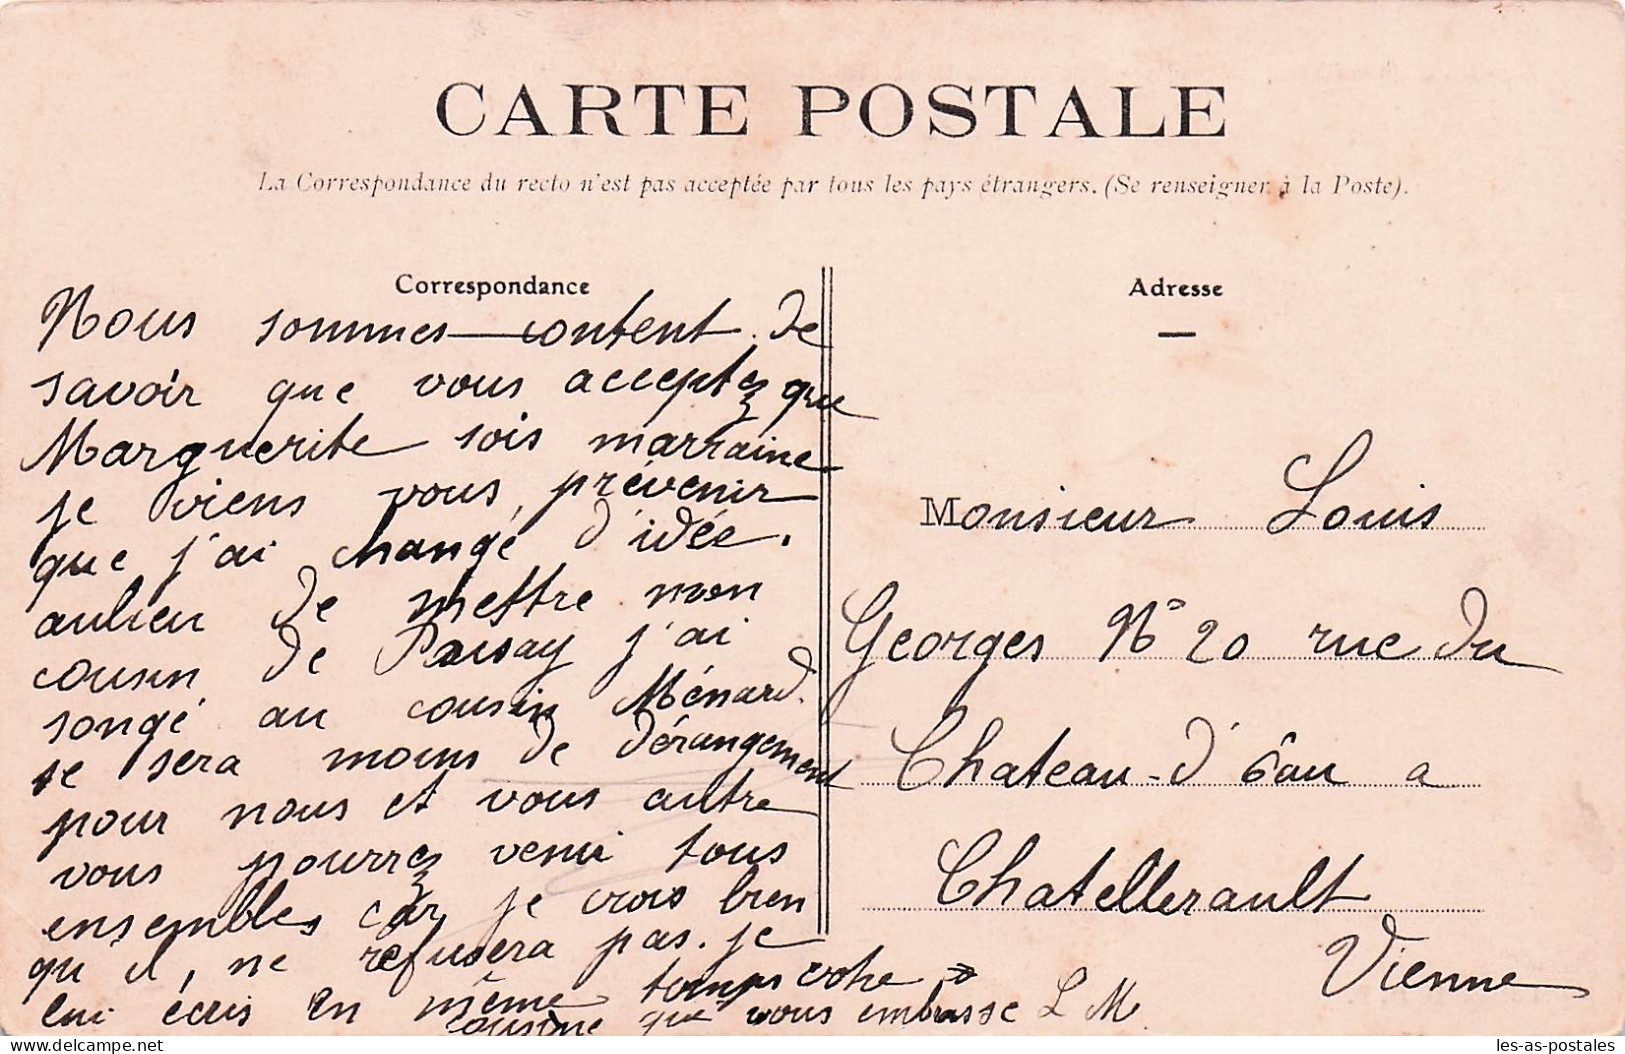 CARTE POSTALE
La Correspondance du recto n'est pas acceptée par tous les pays étrangers. (Se renseigner à la Poste).
Correspondance
Nous sommes content de
savoir que vous acceptez que
Marguerite sois marraine
je viens vous prévenir
que j'ai changé d'idée.
aulieu de mettre mon
cousin de Paisay j'ai
songé au cousin Ménard.
se sera moins de dérangement
pour nous et vous autre
vous pourrez venir tous
ensembles car je crois bien
qu'il, ne refusera pas. je
lui écris en même temps votre
cousine que vous embrasse L M
Adresse
Monsieur Louis
Georges N° 20 rue du
Chateau-d'éau a
Chatellerault
Vienne
les-as-postales
delcampe.net